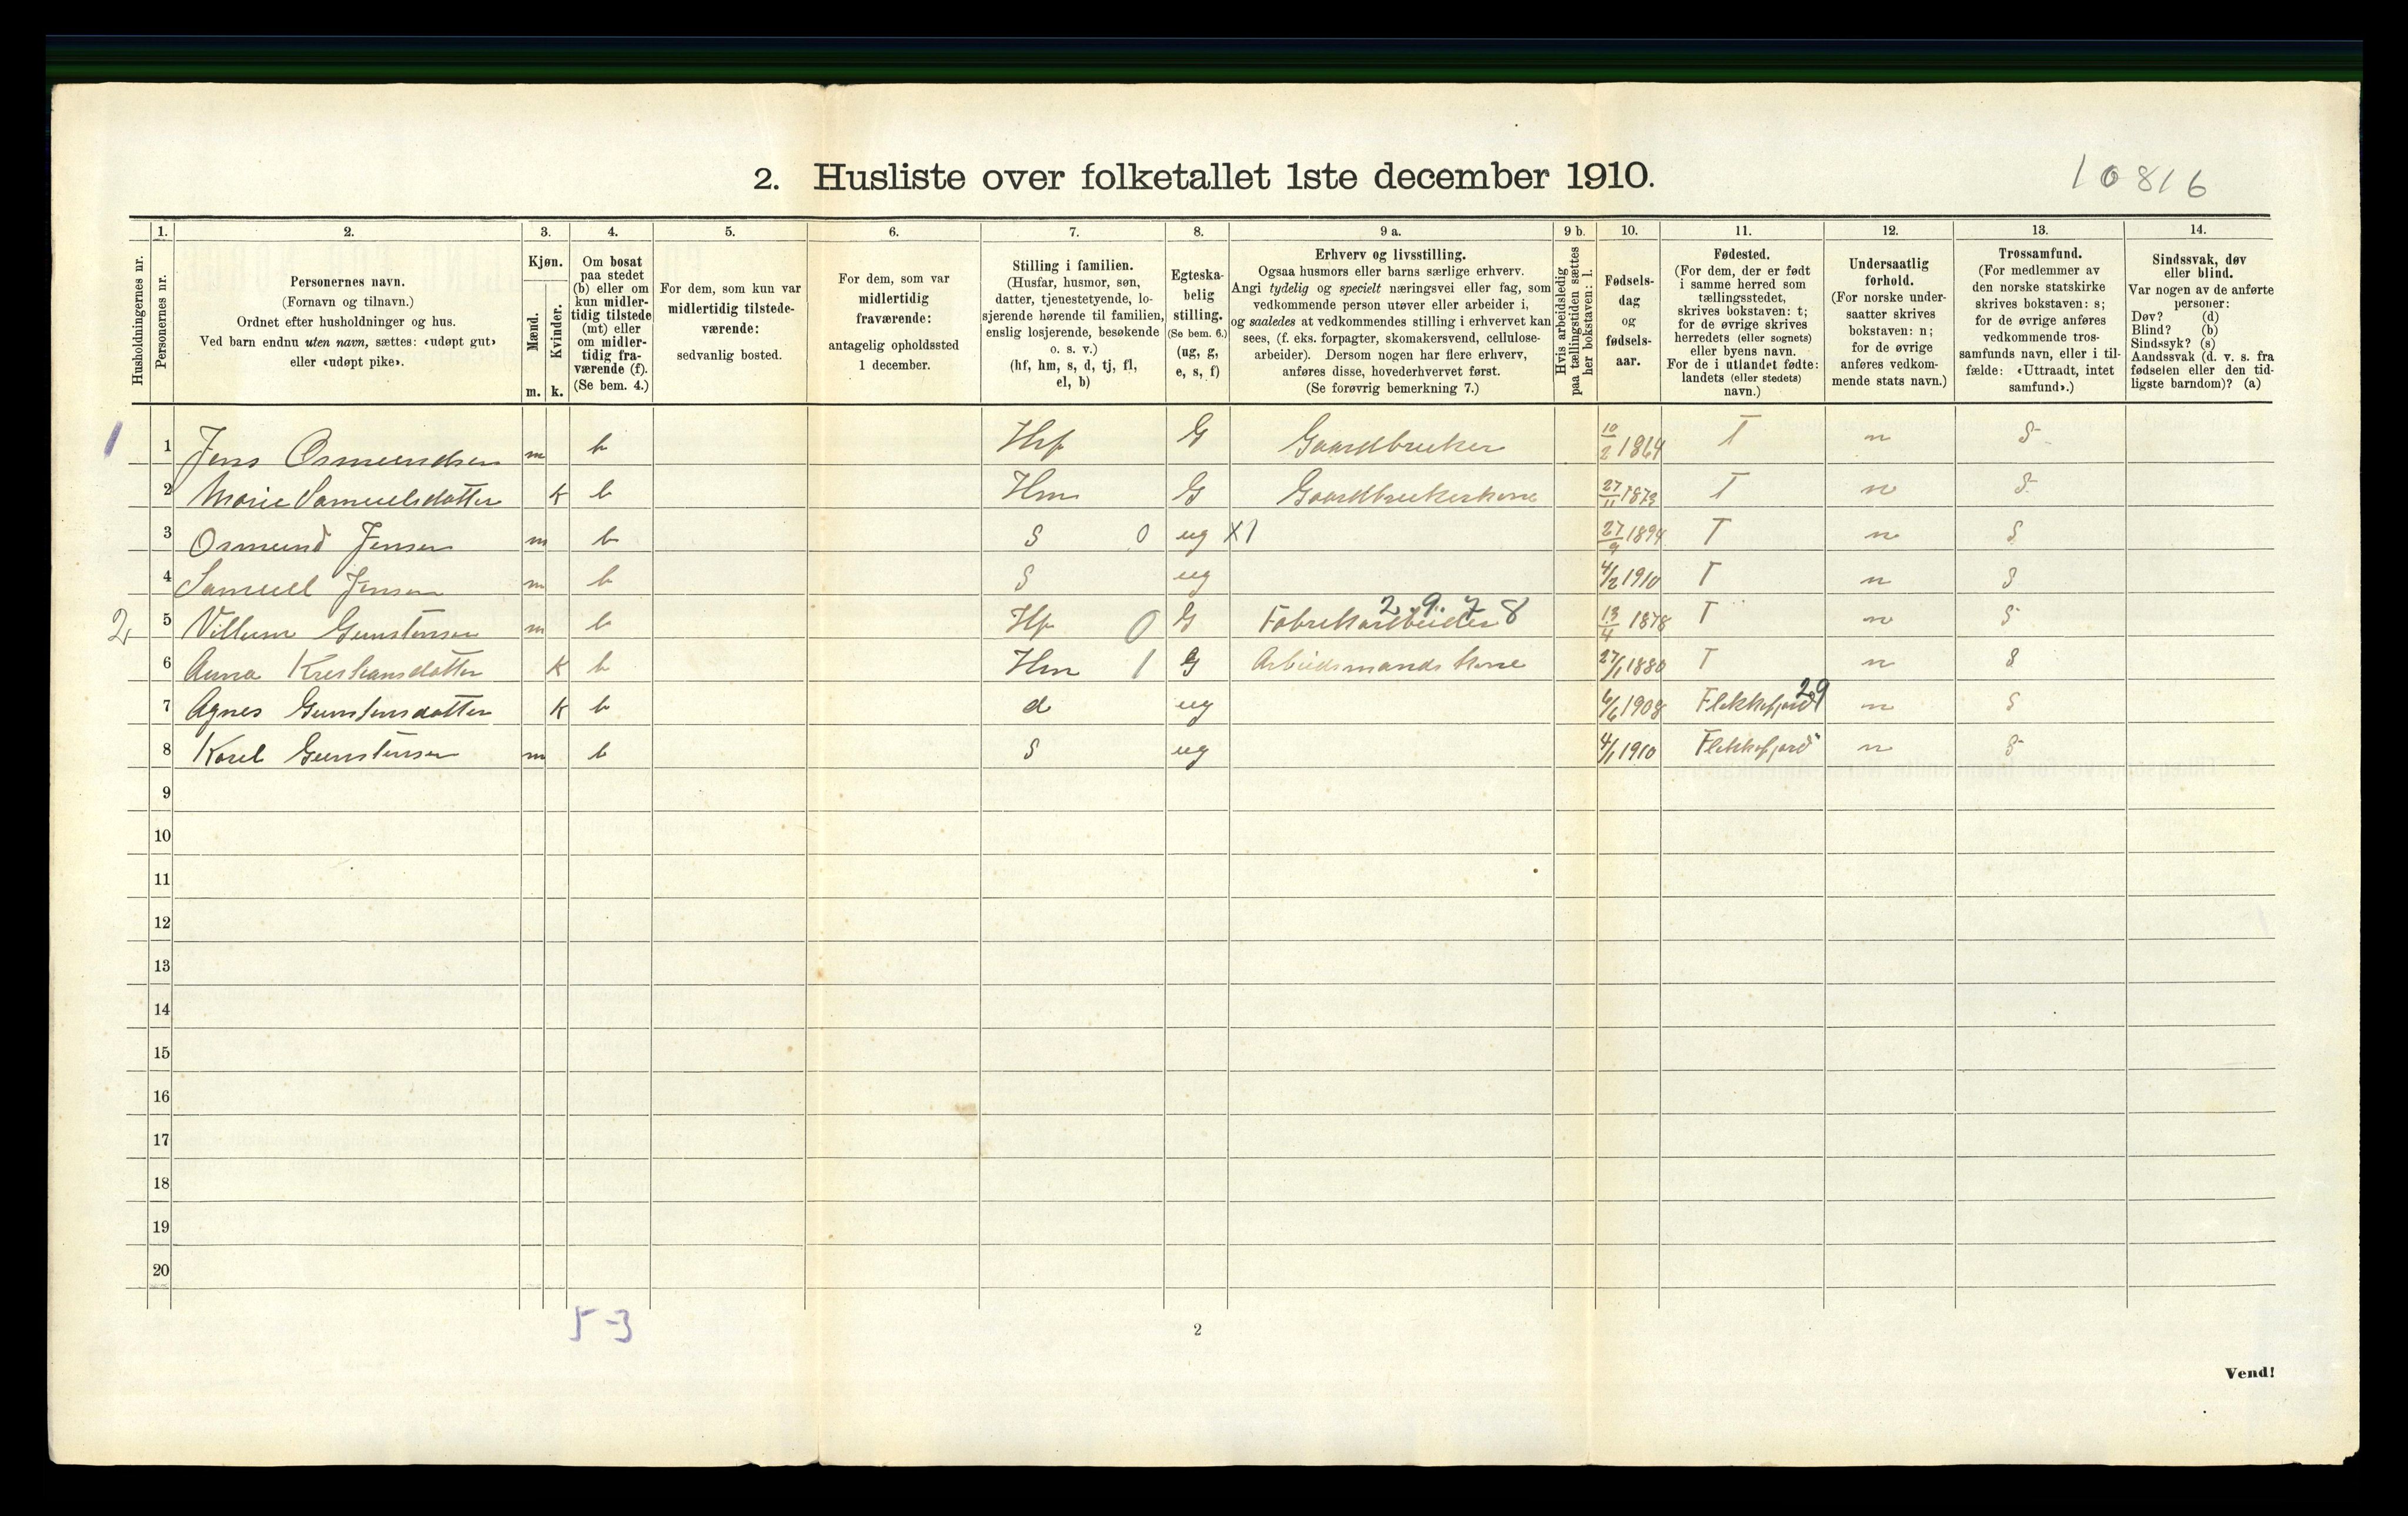 2. Husliste over folketallet 1ste december 1910.
10816
Husholdningernes nr.
1.
Personernes nr.
2.
Personernes navn.
(Fornavn og tilnavn.)
Ordnet efter husholdninger og hus.
Ved barn endnu uten navn, sættes: «udøpt gut»
eller «udøpt pike».
3.
Kjøn.
Mænd.
Kvinder.
m. k.
4.
Om bosat
paa stedet
(b) eller om
kun midler-
tidig tilstede
(mt) eller
om midler-
tidig fra-
værende (f).
(Se bem. 4.)
5.
For dem, som kun var
midlertidig tilstede-
værende:
sedvanlig bosted.
6.
For dem, som var
midlertidig
fraværende:
antagelig opholdssted
1 december.
7.
Stilling i familien.
(Husfar, husmor, søn,
datter, tjenestetyende, lo-
sjerende hørende til familien,
enslig losjerende, besøkende
o. s. v.)
(hf, hm, s, d, tj, fl,
el, b)
8.
Egteska-
belig
stilling.
(Se bem. 6.)
(ug, g,
e, s, f)
9 a.
Erhverv og livsstilling.
Ogsaa husmors eller barns særlige erhverv.
Angi tydelig og specielt næringsvei eller fag, som
vedkommende person utøver eller arbeider i,
og saaledes at vedkommendes stilling i erhvervet kan
sees, (f. eks. forpagter, skomakersvend, cellulose-
arbeider). Dersom nogen har flere erhverv,
anføres disse, hovederhvervet først.
(Se forøvrig bemerkning 7.)
9 b.
Hvis arbeidsledig
paa tællingstiden sættes
her bokstaven: l.
10.
Fødsels-
dag
og
fødsels-
aar.
11.
Fødested.
(For dem, der er født
i samme herred som
tællingsstedet,
skrives bokstaven: t;
for de øvrige skrives
herredets (eller sognets)
eller byens navn.
For de i utlandet fødte:
landets (eller stedets)
navn.)
12.
Undersaatlig
forhold.
(For norske under-
saatter skrives
bokstaven: n;
for de øvrige
anføres vedkom-
mende stats navn.)
13.
Trossamfund.
(For medlemmer av
den norske statskirke
skrives bokstaven: s;
for de øvrige anføres
vedkommende tros-
samfunds navn, eller i til-
fælde: «Uttraadt, intet
samfund».)
14.
Sindssvak, døv
eller blind.
Var nogen av de anførte
personer:
Døv? (d)
Blind? (b)
Sindssyk? (s)
Aandssvak (d. v. s. fra
fødselen eller den tid-
ligste barndom)? (a)
1 1 Jens Osmundsen m b Hf G Gaardbruker 10/2 1864 T n S
2 Marie Samuelsdatter K b Hm G Gaardbrukerkone 27/11 1873 T n S
3 Osmund Jensen m b S 0 ug X1 27/9 1894 T n S
4 Samuel Jensen m b S ug 4/2 1910 T n S
2, 5 Villum Gunstensen m b Hf 0 G Fabrikarbeider 2978 13/4 1878 T n S
6 Anna Kristiansdatter K b Hm 1 G Arbeidsmands kone 27/1 1880 T n S
7 Agnes Gunstensdatter K b d ug 6/6 1908 Flekkefjord 29 n S
8 Karel Gunstensen m b S ug 4/1 1910 Flekkefjord n S
9
10
11
12
13
14
15
16
17
18
19
20
5-3
2
Vend!